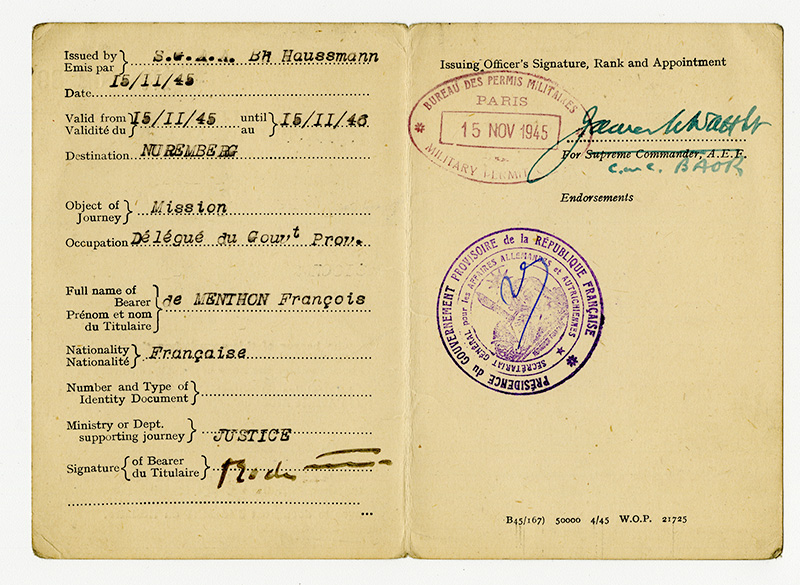 Issued by } S.G.A.A. BH Haussmann
Emis par
15/11/45
Date
Valid from } 15/11/45 until } 15/11/46
Validité du au
Destination NUREMBERG
Object of } Mission
Journey
Occupation Délégué du Gouvt Prov.
Full name of
Bearer } de MENTHON François
Prénom et nom
du Titulaire
Nationality } Française
Nationalité
Number and Type of }
Identity Document
Ministry or Dept. }
supporting journey JUSTICE
Signature { of Bearer }
du Titulaire
Issuing Officer's Signature, Rank and Appointment
BUREAU DES PERMIS MILITAIRES
PARIS
15 NOV 1945
MILITARY PERMIT
For Supreme Commander, A.E.F.
C. in C. BAOR
Endorsements
PRÉSIDENCE du GOUVERNEMENT PROVISOIRE de la RÉPUBLIQUE FRANÇAISE
SECRÉTARIAT GÉNÉRAL pour les AFFAIRES ALLEMANDES et AUTRICHIENNES
B45/167) 50000 4/45 W.O.P. 21725